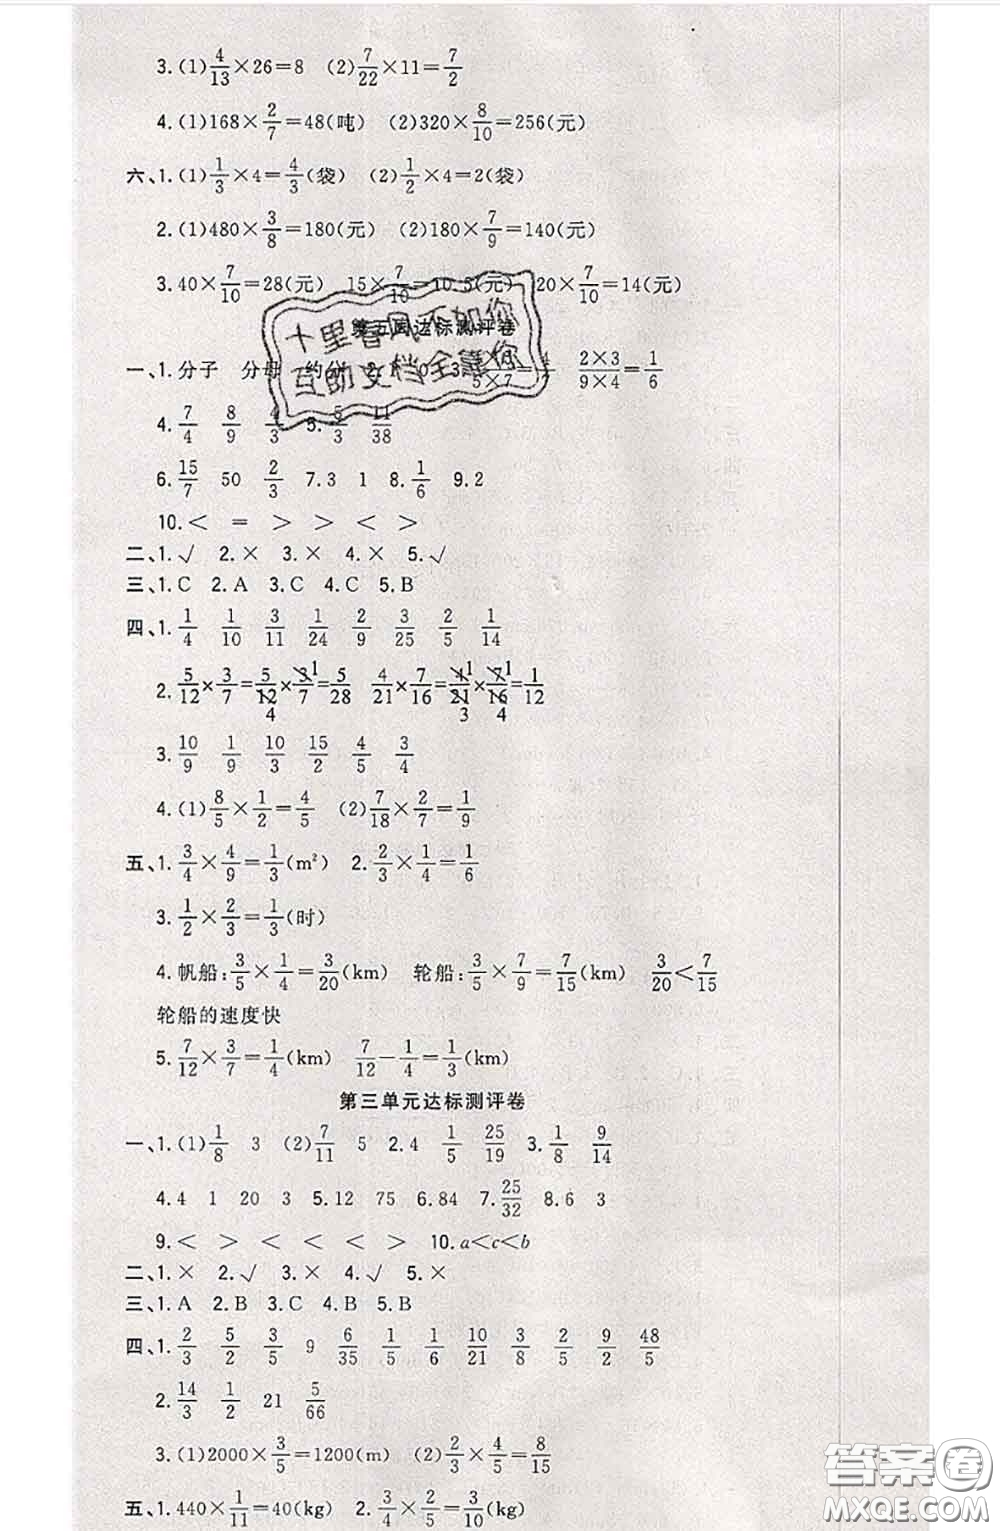 3.(1)4/13×26=8 (2)7/22×11=7/2
4.(1)168×2/7=48(吨) (2)320×8/10=256(元)
六、1.(1)1/3×4=4/3(袋) (2)1/2×4=2(袋)
2.(1)480×3/8=180(元) (2)180×7/9=140(元)
3.40×7/10=28(元) 15×7/10=10.5(元) 20×7/10=14(元)
达标测评卷
十里春风不如你
互助文档全靠你
一、1.分子 分母 约分 2×3/9×4=1/6
4.7/4 8/9 4/3 5.5/3 11/38
6.15/7 50 2/3 7.3 1 8.1/6 9.2
10.< = > > < >
二、1.√ 2.× 3.× 4.× 5.√
三、1.C 2.A 3.C 4.C 5.B
四、1.1/4 1/10 3/11 1/24 2/9 3/25 2/5 1/14
2.5/12×3/7=5/12×3/7=5/28 4/21×7/16=4/21×7/16=1/12
3.10/9 1/9 10/3 15/2 4/5 3/4
4.(1)8/5×1/2=4/5 (2)7/18×2/7=1/9
五、1.3/4×4/9=1/3(m²) 2.2/3×1/4=1/6
3.1/2×2/3=1/3(时)
4.帆船:3/5×1/4=3/20(km) 轮船:3/5×7/9=7/15(km) 3/20<7/15
轮船的速度快
5.7/12×3/7=1/4(km) 7/12-1/4=1/3(km)
第三单元达标测评卷
一、1.(1)1/8 3 (2)7/11 5 2.4 1/5 25/19 3.1/8 9/14
4.4 1 20 3 5.12 75 6.84 7.25/32 8.6 3
9.< > < < < > 10.a<c<b
二、1.× 2.√ 3.× 4.√ 5.×
三、1.A 2.B 3.C 4.B 5.B
四、1.2/3 5/2 3/5 9 6/35 1/5 1/6 10/21 3/8 2/5 9/2 48/5
2.14/3 1/2 21 5/66
3.(1)2000×3/5=1200(m) (2)2/3×4/5=8/15
五、1.440×1/11=40(kg) 2.3/4×2/5=3/10(kg)
答案圈
MXQE.COM